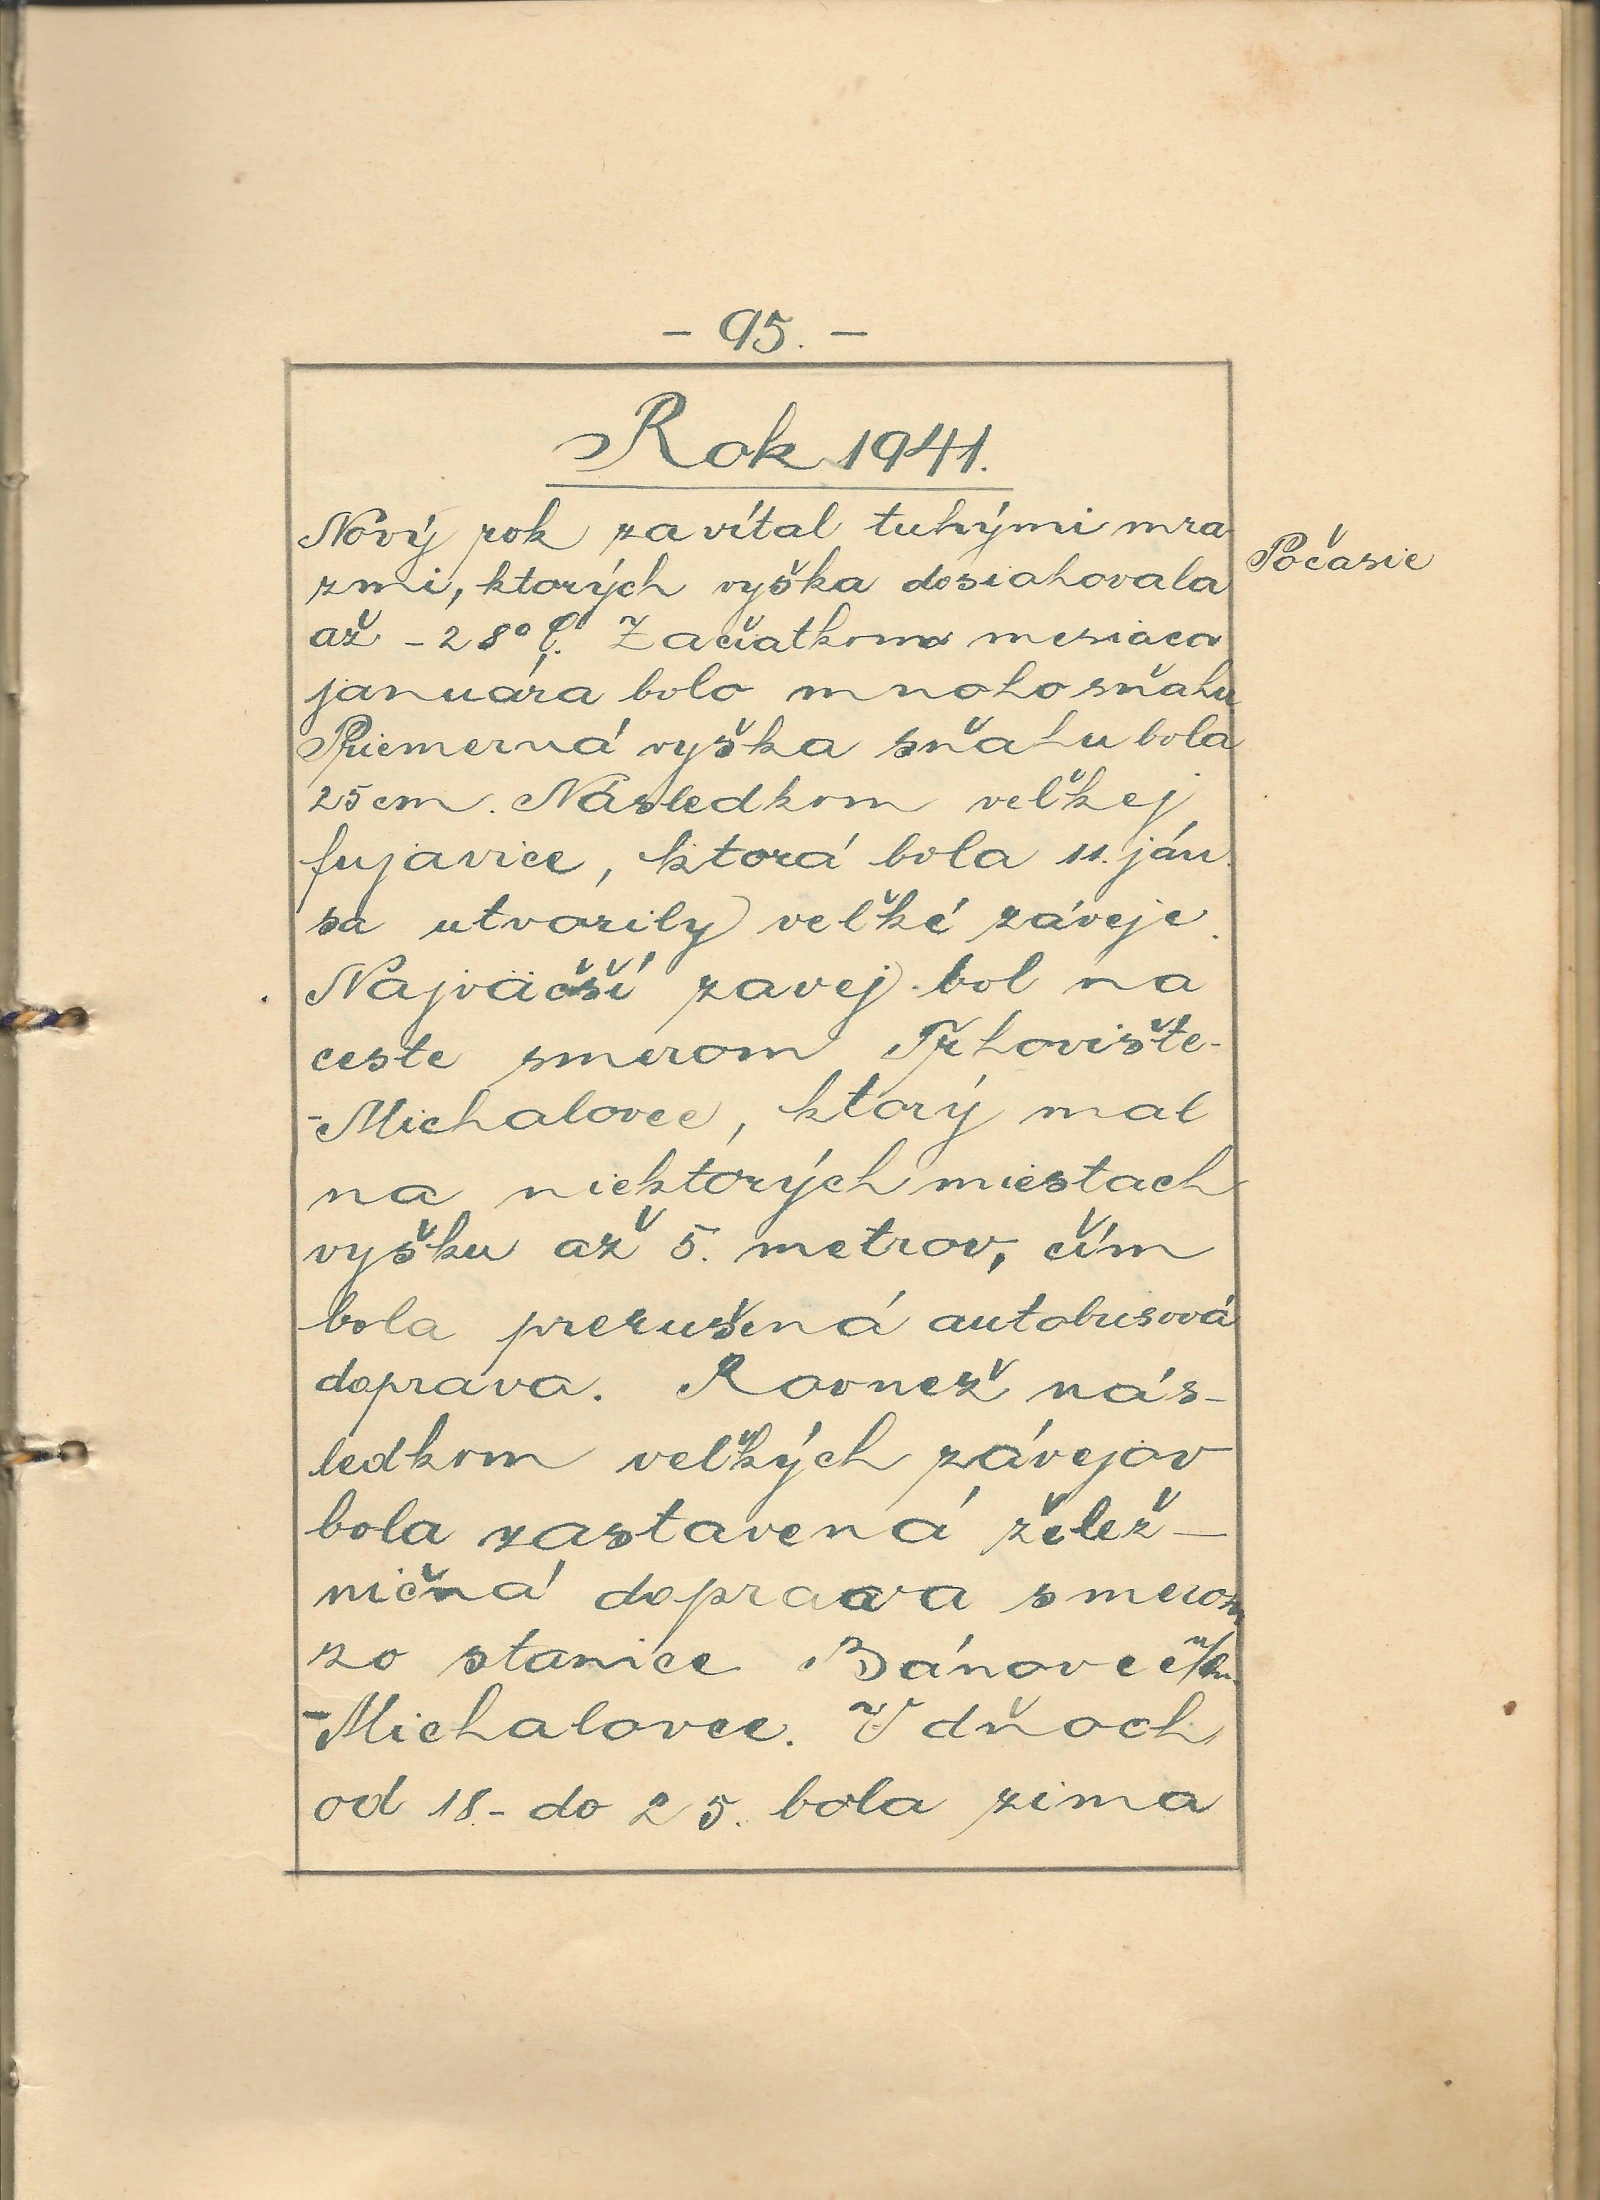 - 95. -
Rok 1941.
Nový rok zavítal tuhými mra
zmi, ktorých vyška dosiahovala
až - 28° C. Začiatkom mesiaca
januára bolo mnoho sňahu
Priemerná vyška sňahu bola
25 cm. Následkom veľkej
fujavice, ktorá bola 11. ján.
sa utvorily veľké záveje.
Najväčší zavej bol na
ceste smerom Trhovište-
-Michalovce, ktorý mal
na niektorých miestach
vyšku až 5. metrov, čím
bola prerušená autobusová
doprava. Rovnež nás-
ledkom veľkých závejov
bola zastavená želež-
ničná doprava smerom
zo stanice Bánovce n/
-Michalovce. V dňoch
od 18.- do 25. bola zima
Počasie